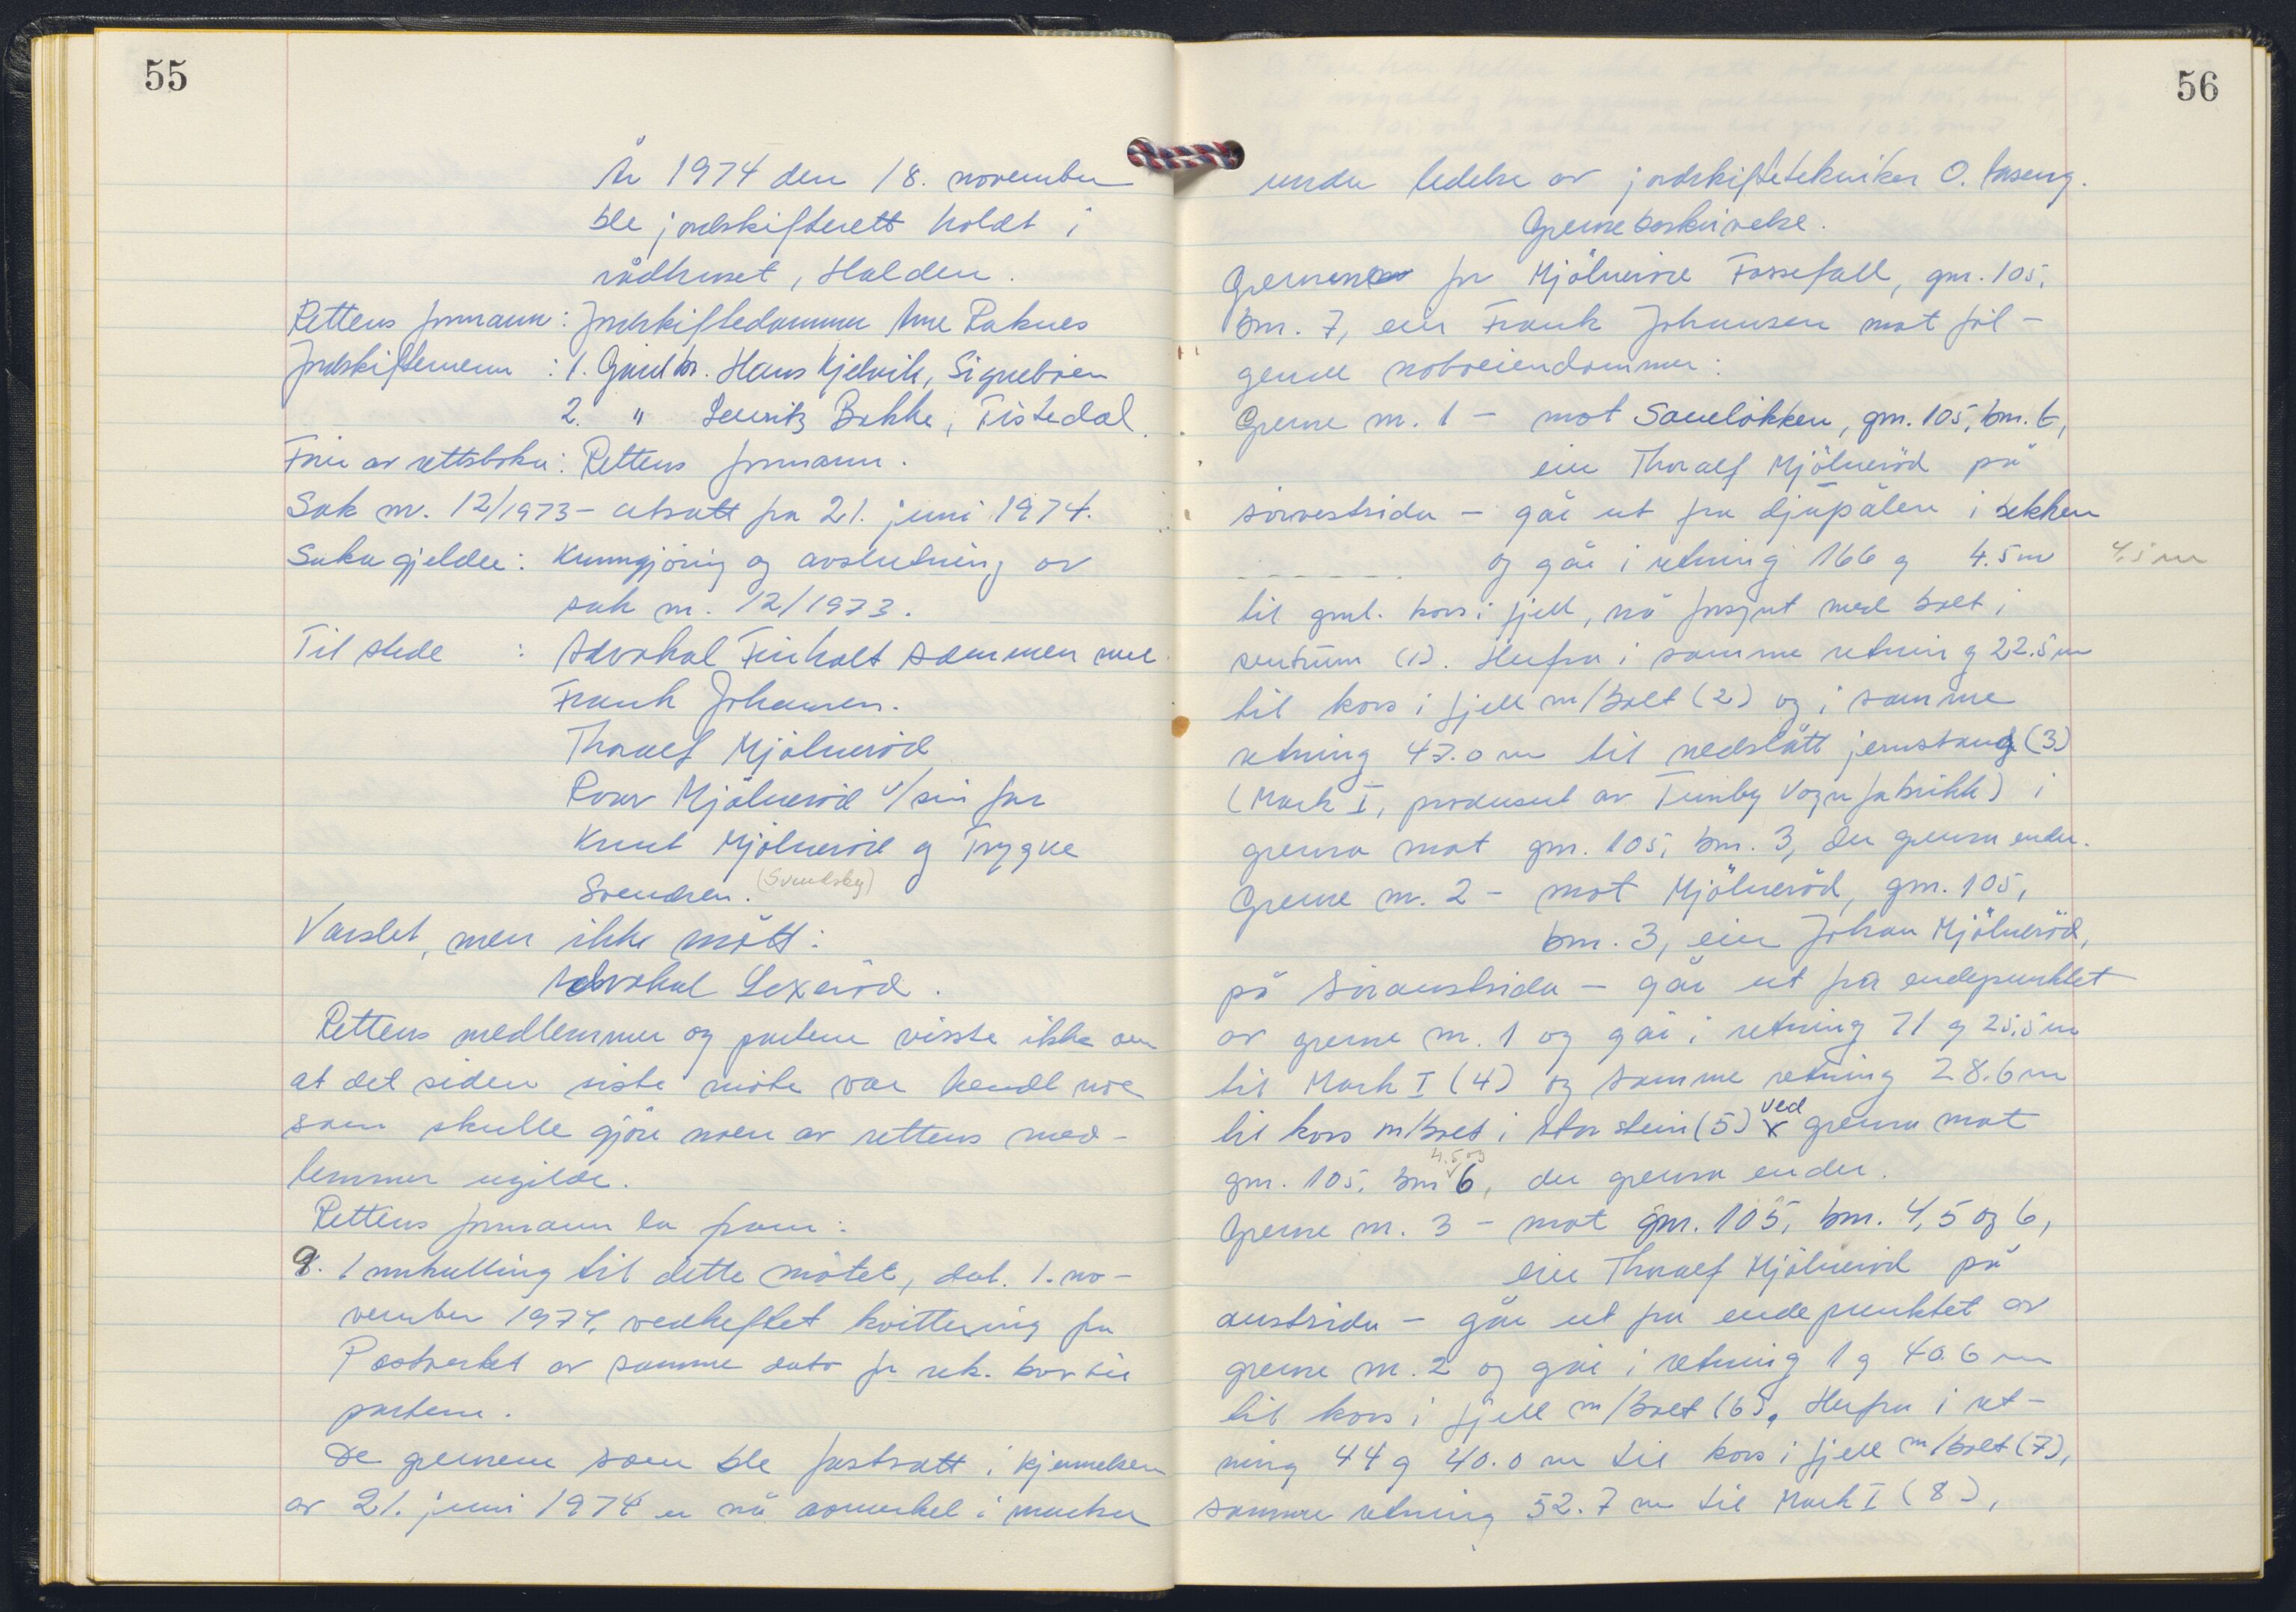 55
År 1974 den 18. november
ble jordskifterett holdt i
rådhuset, Halden.
Rettens formann: Jordskiftedommer Arne Raknes
Jordskiftemenn : 1. Gårdbr. Hans Kjelvik, Signebøen
2. " Lauritz Bakke, Tistedal.
Fører av rettsboka: Rettens formann.
Sak nr. 12/1973 - utsatt fra 21. juni 1974.
Saka gjelder: Kunngjöring og avslutning av
sak nr. 12/1973.
Til stede : Advokat Finholt sammen med
Frank Johansen.
Thoralf Mjölneröd
Roar Mjölneröd v/sin far
Knut Mjölneröd og Trygve
Svendsen. (Svendsby)
Varslet, men ikke mött:
Advokat Lexeröd.
Rettens medlemmer og partene visste ikke om
at det siden siste möte var hendt noe
som skulle gjöre noen av rettens med-
lemmer ugilde.
Rettens formann la fram:
9. Innkalling til dette mötet, dat. 1. no-
vember 1974, vedheftet kvittering fra
Postverket av samme dato for rek. brev til
partene.
De grensene som ble fastsatt i kjennelsen
av 21. juni 1974 er nå avmerket i marka
56
under ledelse av jordskiftetekniker O. Aaseng.
Grensebeskrivelse.
Grensene for Mjölneröd Fossefall, gnr. 105,
bnr. 7, eier Frank Johansen mot föl-
gende naboeiendommer:
Grense nr. 1 - mot Saueløkken, gnr. 105, bnr. 6,
eier Thoralf Mjölneröd på
sörvestsida - går ut fra djupålen i bekken
og går i retning 166 g 4.5 m 4.5 m
til gml. kors i fjell, nå forsynt med bolt i
sentrum (1). Herfra i samme retning 22.5 m
til kors i fjell m/bolt (2) og i samme
retning 47.0 m til nedslått jernstang (3)
(Mark I, produsert av Vognfabrikk) i
grensa mot gnr. 105, bnr. 3, der grensa ender.
Grense nr. 2 - mot Mjölneröd, gnr. 105,
bnr. 3, eier Johan Mjölneröd,
på söraustsida - går ut fra endepunktet
av grense nr. 1 og går i retning 71 g 25.5 m
til Mark I (4) og samme retning 28.6 m
til kors m/bolt i stor stein (5) ved grensa mot
gnr. 105, bnr 4.5 og 6, der grensa ender.
Grense nr. 3 - mot gnr. 105, bnr. 4, 5 og 6,
eier Thoralf Mjölneröd på
austsida - går ut fra endepunktet av
grense nr. 2 og går i retning 1 g 40.6 m
til kors i fjell m/bolt (6). Herfra i ret-
ning 44 g 40.0 m til kors i fjell m/bolt (7),
samme retning 52.7 m til Mark I (8),